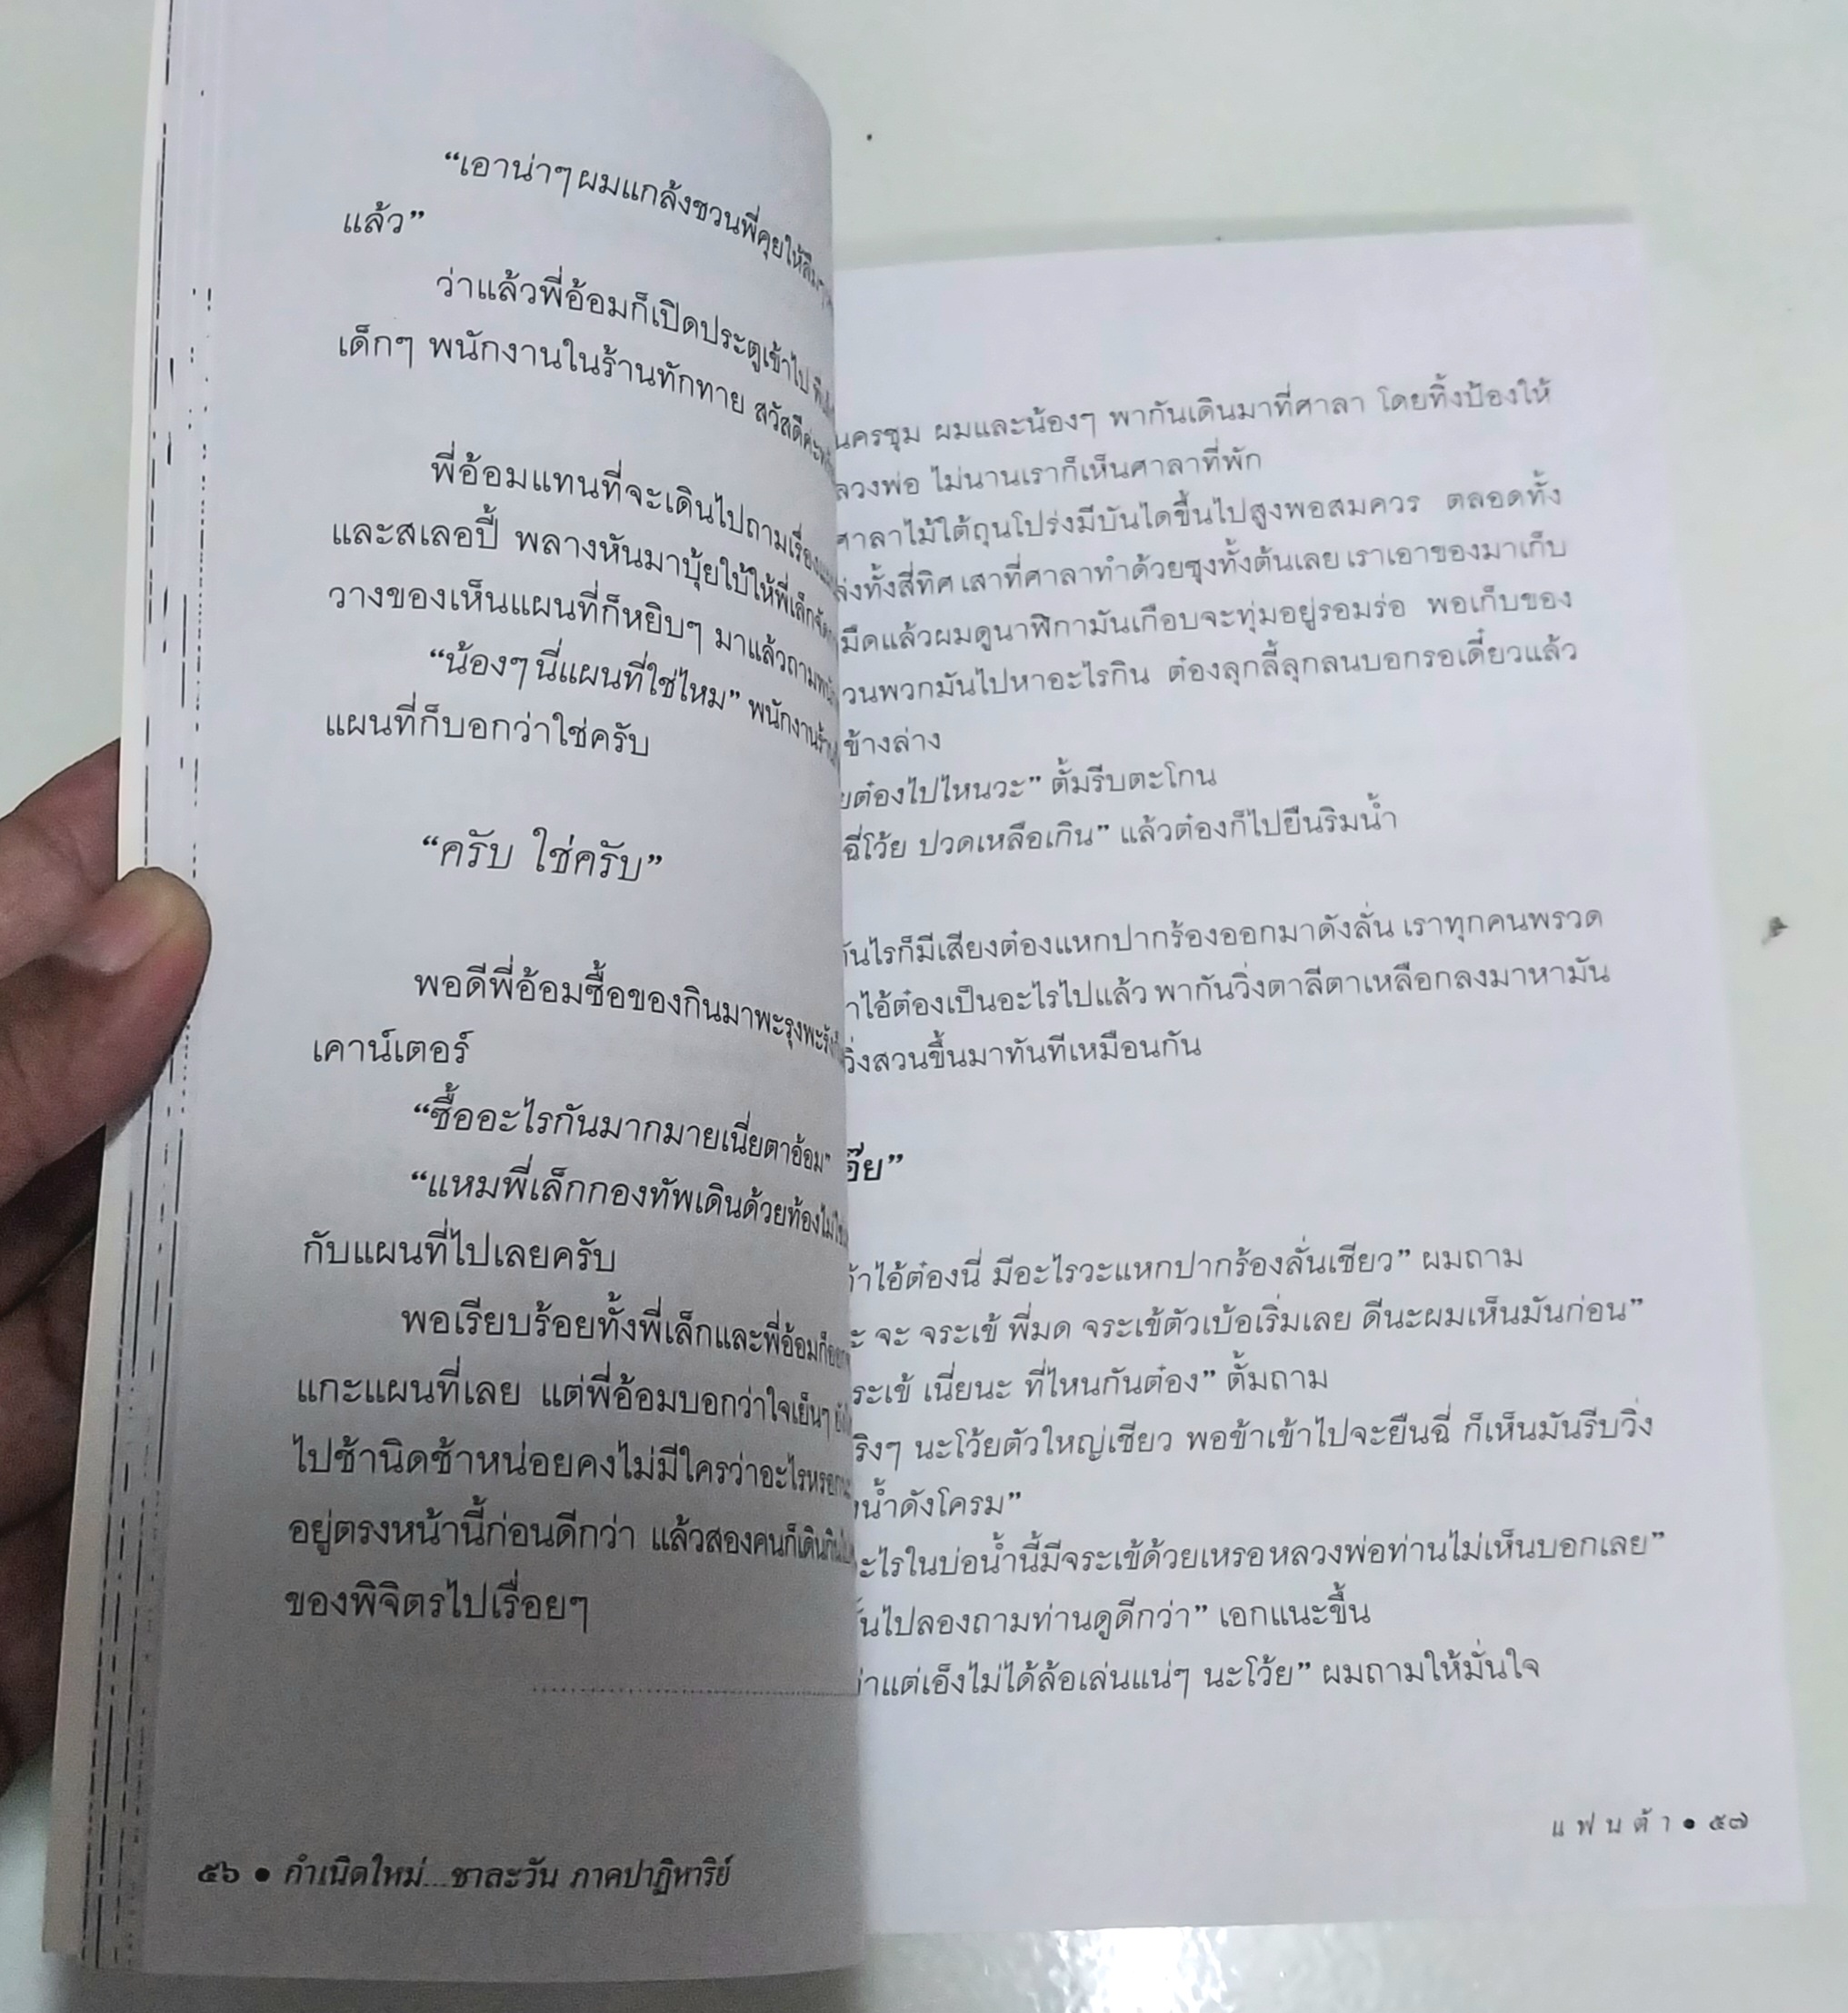 “เอาน่าๆ ผมแกล้งชวนพี่คุยให้ลืมๆ
แล้ว”
ว่าแล้วพี่อ้อมก็เปิดประตูเข้าไป
เด็กๆ พนักงานในร้านทักทาย สวัสดีค่ะ
พี่อ้อมแทนที่จะเดินไปถามเรื่อง
และสเลอปี้ พลางหันมาบุ้ยใบ้ให้พี่เล็ก
วางของเห็นแผนที่ก็หยิบๆ มาแล้วถาม
“น้องๆ นี่แผนที่ใช่ไหม” พนักงาน
แผนที่ก็บอกว่าใช่ครับ
“ครับ ใช่ครับ”
พอดีพี่อ้อมซื้อของกินมาพะรุงพะรัง
เคาน์เตอร์
“ซื้ออะไรกันมากมายเนี่ยตาอ้อม”
“แหมพี่เล็กกองทัพเดินด้วยท้อง
กับแผนที่ไปเลยครับ
พอเรียบร้อยทั้งพี่เล็กและพี่อ้อม
แกะแผนที่เลย แต่พี่อ้อมบอกว่าใจเย็นๆ
ไปช้านิดช้าหน่อยคงไม่มีใครว่าอะไร
อยู่ตรงหน้านี้ก่อนดีกว่า แล้วสองคนก็เดิน
ของพิจิตรไปเรื่อยๆ
๕๖ • กำเนิดใหม่...ชาละวัน ภาคปาฏิหาริย์
นครชุม ผมและน้องๆ พากันเดินมาที่ศาลา โดยทิ้งป้องให้
ลวงพ่อ ไม่นานเราก็เห็นศาลาที่พัก
ศาลาไม้ใต้ถุนโปร่งมีบันไดขึ้นไปสูงพอสมควร ตลอดทั้ง
ล่งทั้งสี่ทิศ เสาที่ศาลาทำด้วยซุงทั้งต้นเลย เราเอาของมาเก็บ
มืดแล้วผมดูนาฬิกามันเกือบจะทุ่มอยู่รอมร่อ พอเก็บของ
วนพวกมันไปหาอะไรกิน ต๋องลุกลี้ลุกลนบอกรอเดี๋ยวแล้ว
ข้างล่าง
ยต๋องไปไหนวะ” ตั้มรีบตะโกน
ฉี่โว้ย ปวดเหลือเกิน” แล้วต๋องก็ไปยืนริมน้ำ
ันไรก็มีเสียงต๋องแหกปากร้องออกมาดังลั่น เราทุกคนพรวด
าไอ้ต๋องเป็นอะไรไปแล้ว พากันวิ่งตาลีตาเหลือกลงมาหามัน
วิ่งสวนขึ้นมาทันทีเหมือนกัน
อ๊ย”
ำไอ้ต๋องนี่ มีอะไรวะแหกปากร้องลั่นเชียว” ผมถาม
จะ จระเข้ พี่มด จระเข้ตัวเบ้อเริ่มเลย ดีนะผมเห็นมันก่อน”
ระเข้ เนี่ยนะ ที่ไหนกันต๋อง” ตั้มถาม
ริงๆ นะโว้ยตัวใหญ่เชียว พอข้าเข้าไปจะยืนฉี่ ก็เห็นมันรีบวิ่ง
น้ำดังโครม”
ะไรในบ่อน้ำนี้มีจระเข้ด้วยเหรอหลวงพ่อท่านไม่เห็นบอกเลย”
ั้นไปลองถามท่านดูดีกว่า” เอกแนะขึ้น
ว่าแต่เอ็งไม่ได้ล้อเล่นแน่ๆ นะโว้ย” ผมถามให้มั่นใจ
แฟนต้า • ๕๗